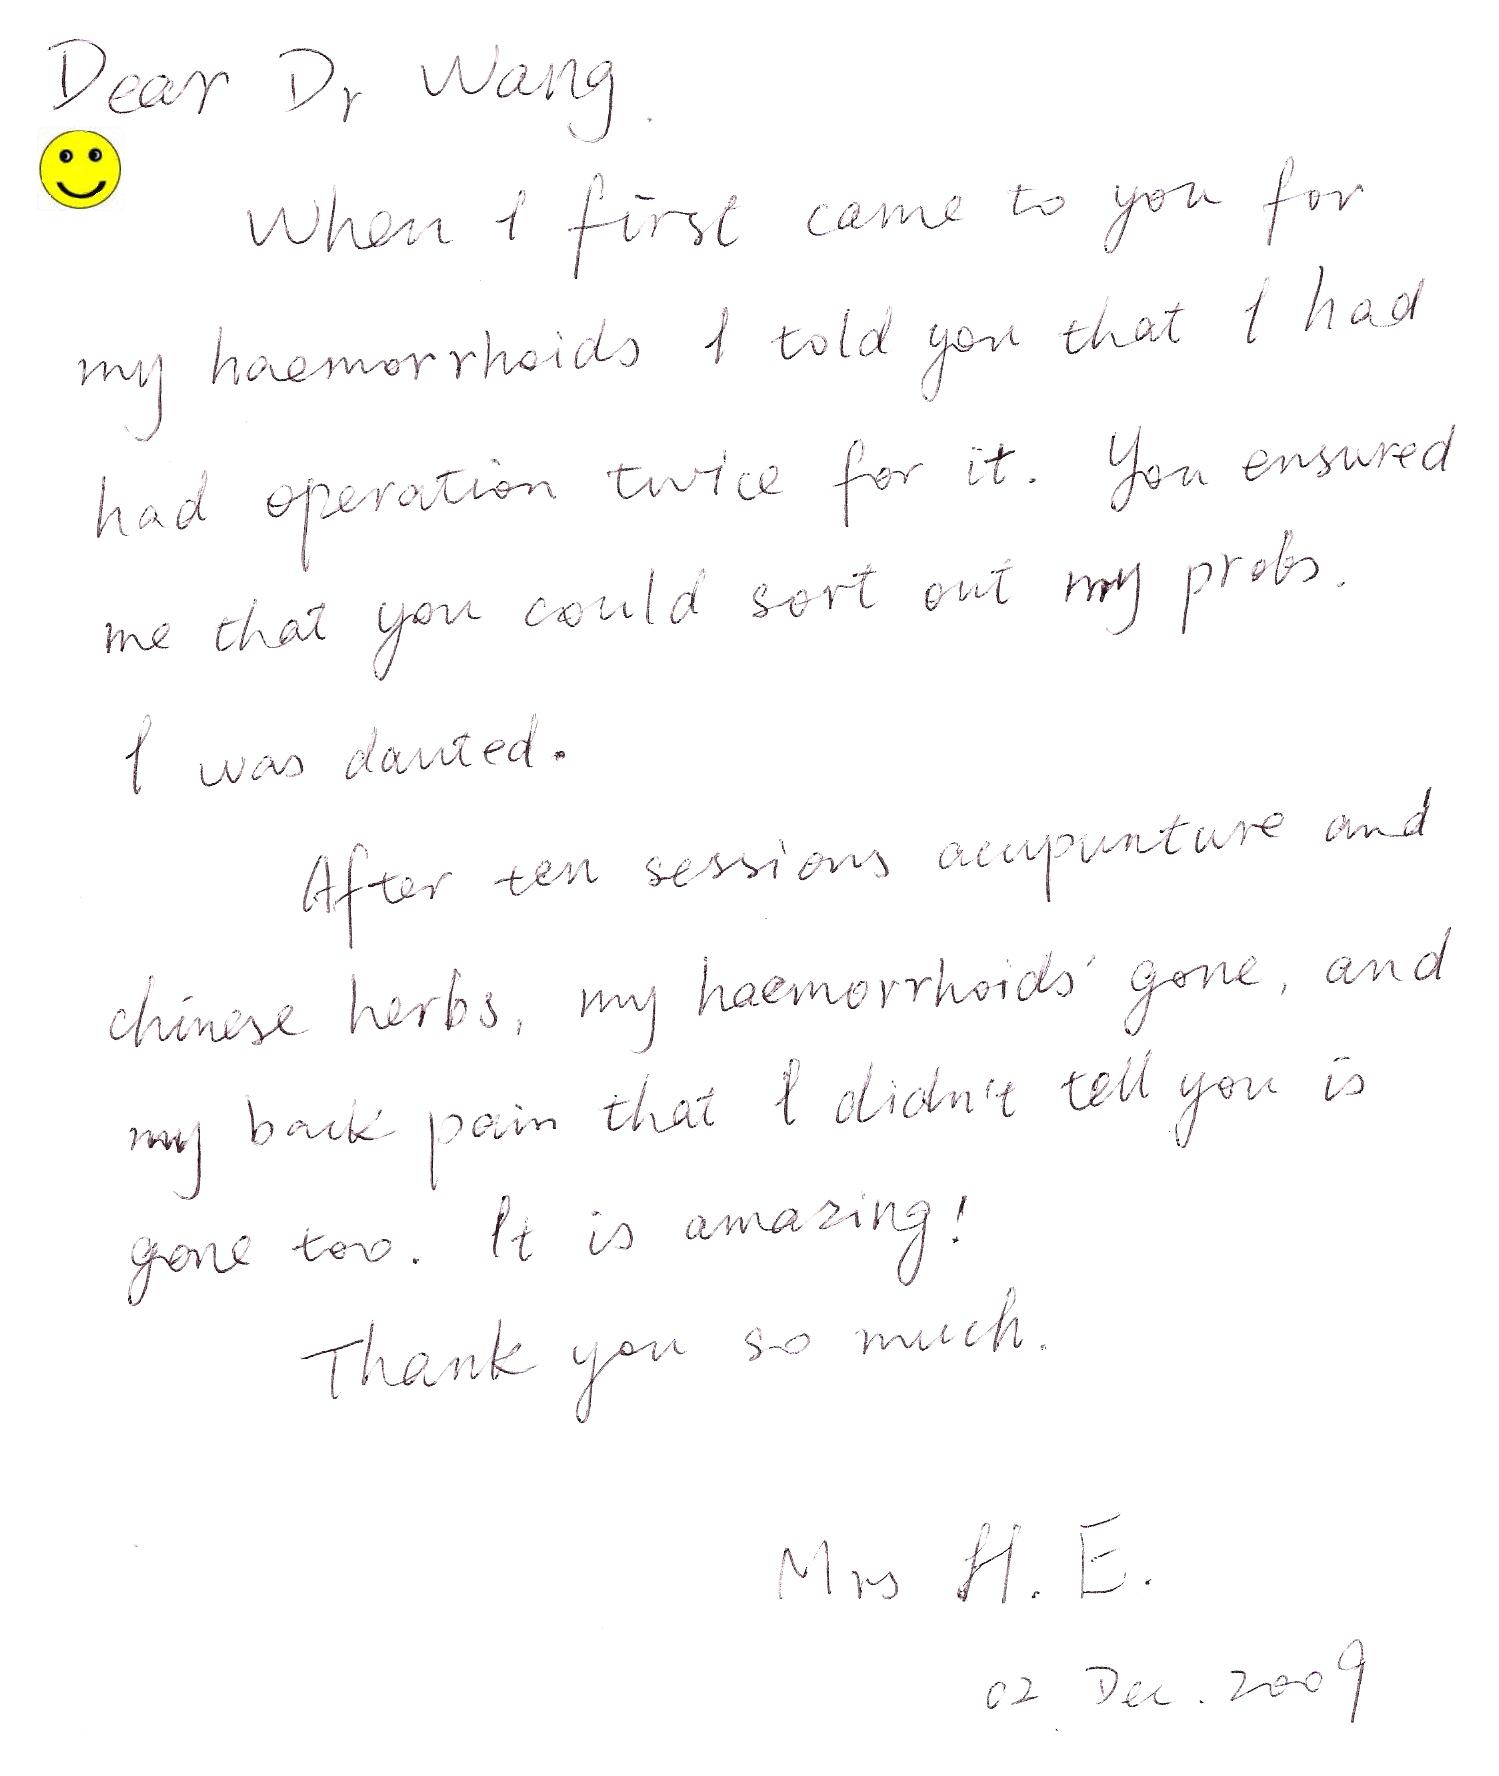 Dear Dr Wang.
When I first came to you for
my haemorrhoids I told you that I had
had operation twice for it. You ensured
me that you could sort out my probs.
I was danted.
After ten sessions acupunture and
chinese herbs, my haemorrhoids' gone, and
my back pain that I didn't tell you is
gone too. It is amazing!
Thank you so much.
Mrs H. E.
02 Dec. 2009